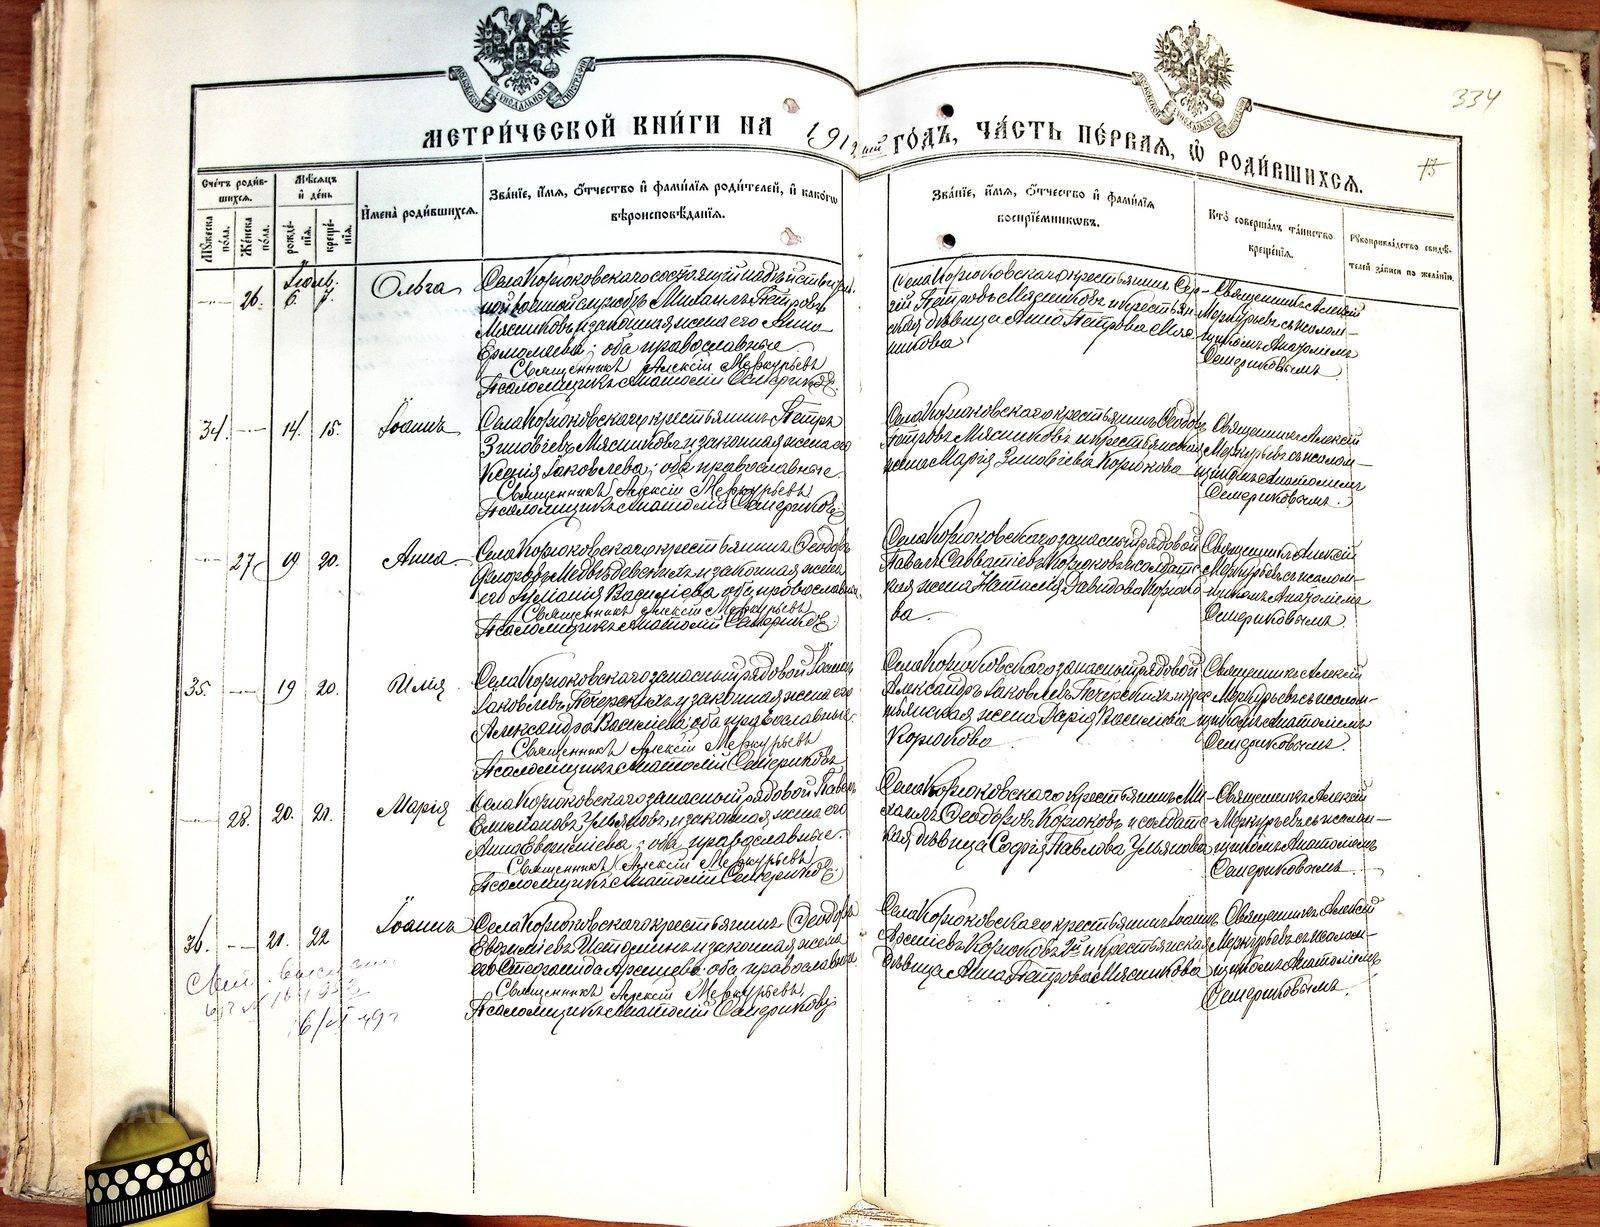 334
МЕТРИ́ЧЕСКОЙ КНИ́ГИ НА 191 ГО́ДЪ, ЧА́СТЬ ПЕ́РВАЯ, Ѡ РОДИ́ВШИХСЯ.
Сче́тъ роди́в-
шихся.
Му́жеска по́ла.
Же́нска по́ла.
Мѣ́сяцъ
и҆ де́нь
рожде́-
нія.
креще́-
нія.
И҆мена̀ роди́вшихся.
Зва́ніе, и҆́мя, ѻ҆́тчество и҆ фами́лія роди́телей, и҆ како́гѡ
вѣроисповѣ́данія.
Зва́ніе, и҆́мя, ѻ҆́тчество и҆ фами́лія
воспріе́мниковъ.
Кто̀ соверша́лъ та́инство
креще́нія.
Рꙋкоприкла́дство свидѣ́-
телей за́писи по жела́нію.
Іюль.
26. 6. 7. Ольга
Села Корюковскаго состоящий на дѣйствитель-
ной военной службѣ Михаилъ Петровъ
Мясниковъ и законная жена его Анна
Ермолаева; оба православные
Священникъ Алексій Меркурьевъ
Псаломщикъ Анатолій Семериковъ
Села Корюковскаго крестьянинъ Сер-
гій Петровъ Мясниковъ и крестьян-
ская дѣвица Анна Петрова Мяс-
никова
Священникъ Алексій
Меркурьевъ съ псалом-
щикомъ Анатоліемъ
Семериковымъ.
34. 14. 15. Іоаннъ
Села Корюковскаго крестьянинъ Петръ
Зиновіевъ Мясниковъ и законная жена его
Ксенія Іаковлева; оба православные
Священникъ Алексій Меркурьевъ
Псаломщикъ Анатолій Семериковъ
Села Корюковскаго крестьянинъ Ѳеодоръ
Петровъ Мясниковъ и крестьянская
жена Марія Зиновіева Корюкова
Священникъ Алексій
Меркурьевъ съ псалом-
щикомъ Анатоліемъ
Семериковымъ.
27 19 20. Анна
Села Корюковскаго крестьянинъ Ѳеодоръ
Флоровъ Медвѣдевскихъ и законная жена
его Іуліанія Василіева оба православные
Священникъ Алексій Меркурьевъ
Псаломщикъ Анатолій Семериковъ
Села Корюковскаго запасный рядовой
Павелъ Савватіевъ Корюковъ и солдатс-
кая жена Наталія Давидова Корюко-
ва.
Священникъ Алексій
Меркурьевъ съ псалом-
щикомъ Анатоліемъ
Семериковымъ
35. 19 20. Илія
Села Корюковскаго запасный рядовой Іоаннъ
Іаковлевъ Печерскихъ и законная жена его
Александра Василіева; оба православные
Священникъ Алексій Меркурьевъ
Псаломщикъ Анатолій Семериковъ
Села Корюковскаго запасный рядовой
Александръ Іаковлевъ Печерскихъ и крес-
тьянская жена Дарія Василіева
Корюкова
Священникъ Алексій
Меркурьевъ съ псалом-
щикомъ Анатоліемъ
Семериковымъ.
28. 20. 21. Марія
Села Корюковскаго запасный рядовой Павелъ
Ульяновъ и законная жена его
Анна Евгеніева; оба православные.
Священникъ Алексій Меркурьевъ
Псаломщикъ Анатолій Семериковъ
Села Корюковскаго крестьянинъ Ми-
хаилъ Ѳеодоровъ Корюковъ и солдатс-
кая дѣвица Софія Павлова Ульянова
Священникъ Алексій
Меркурьевъ съ псалом-
щикомъ Анатоліемъ
Семериковымъ.
36. 21. 22 Іоаннъ
Села Корюковскаго крестьянинъ Ѳеодоръ
Евфиміевъ и законная жена
его Стефанида Арсеніева оба православные.
Священникъ Алексій Меркурьевъ
Псаломщикъ Анатолій Семериковъ
Села Корюковскаго крестьянинъ Іоаннъ
Арсеніевъ Корюковъ 2й и крестьянская
дѣвица Анна Петрова Мясникова
Священникъ Алексій
Меркурьевъ съ псалом-
щикомъ Анатоліемъ
Семериковымъ.